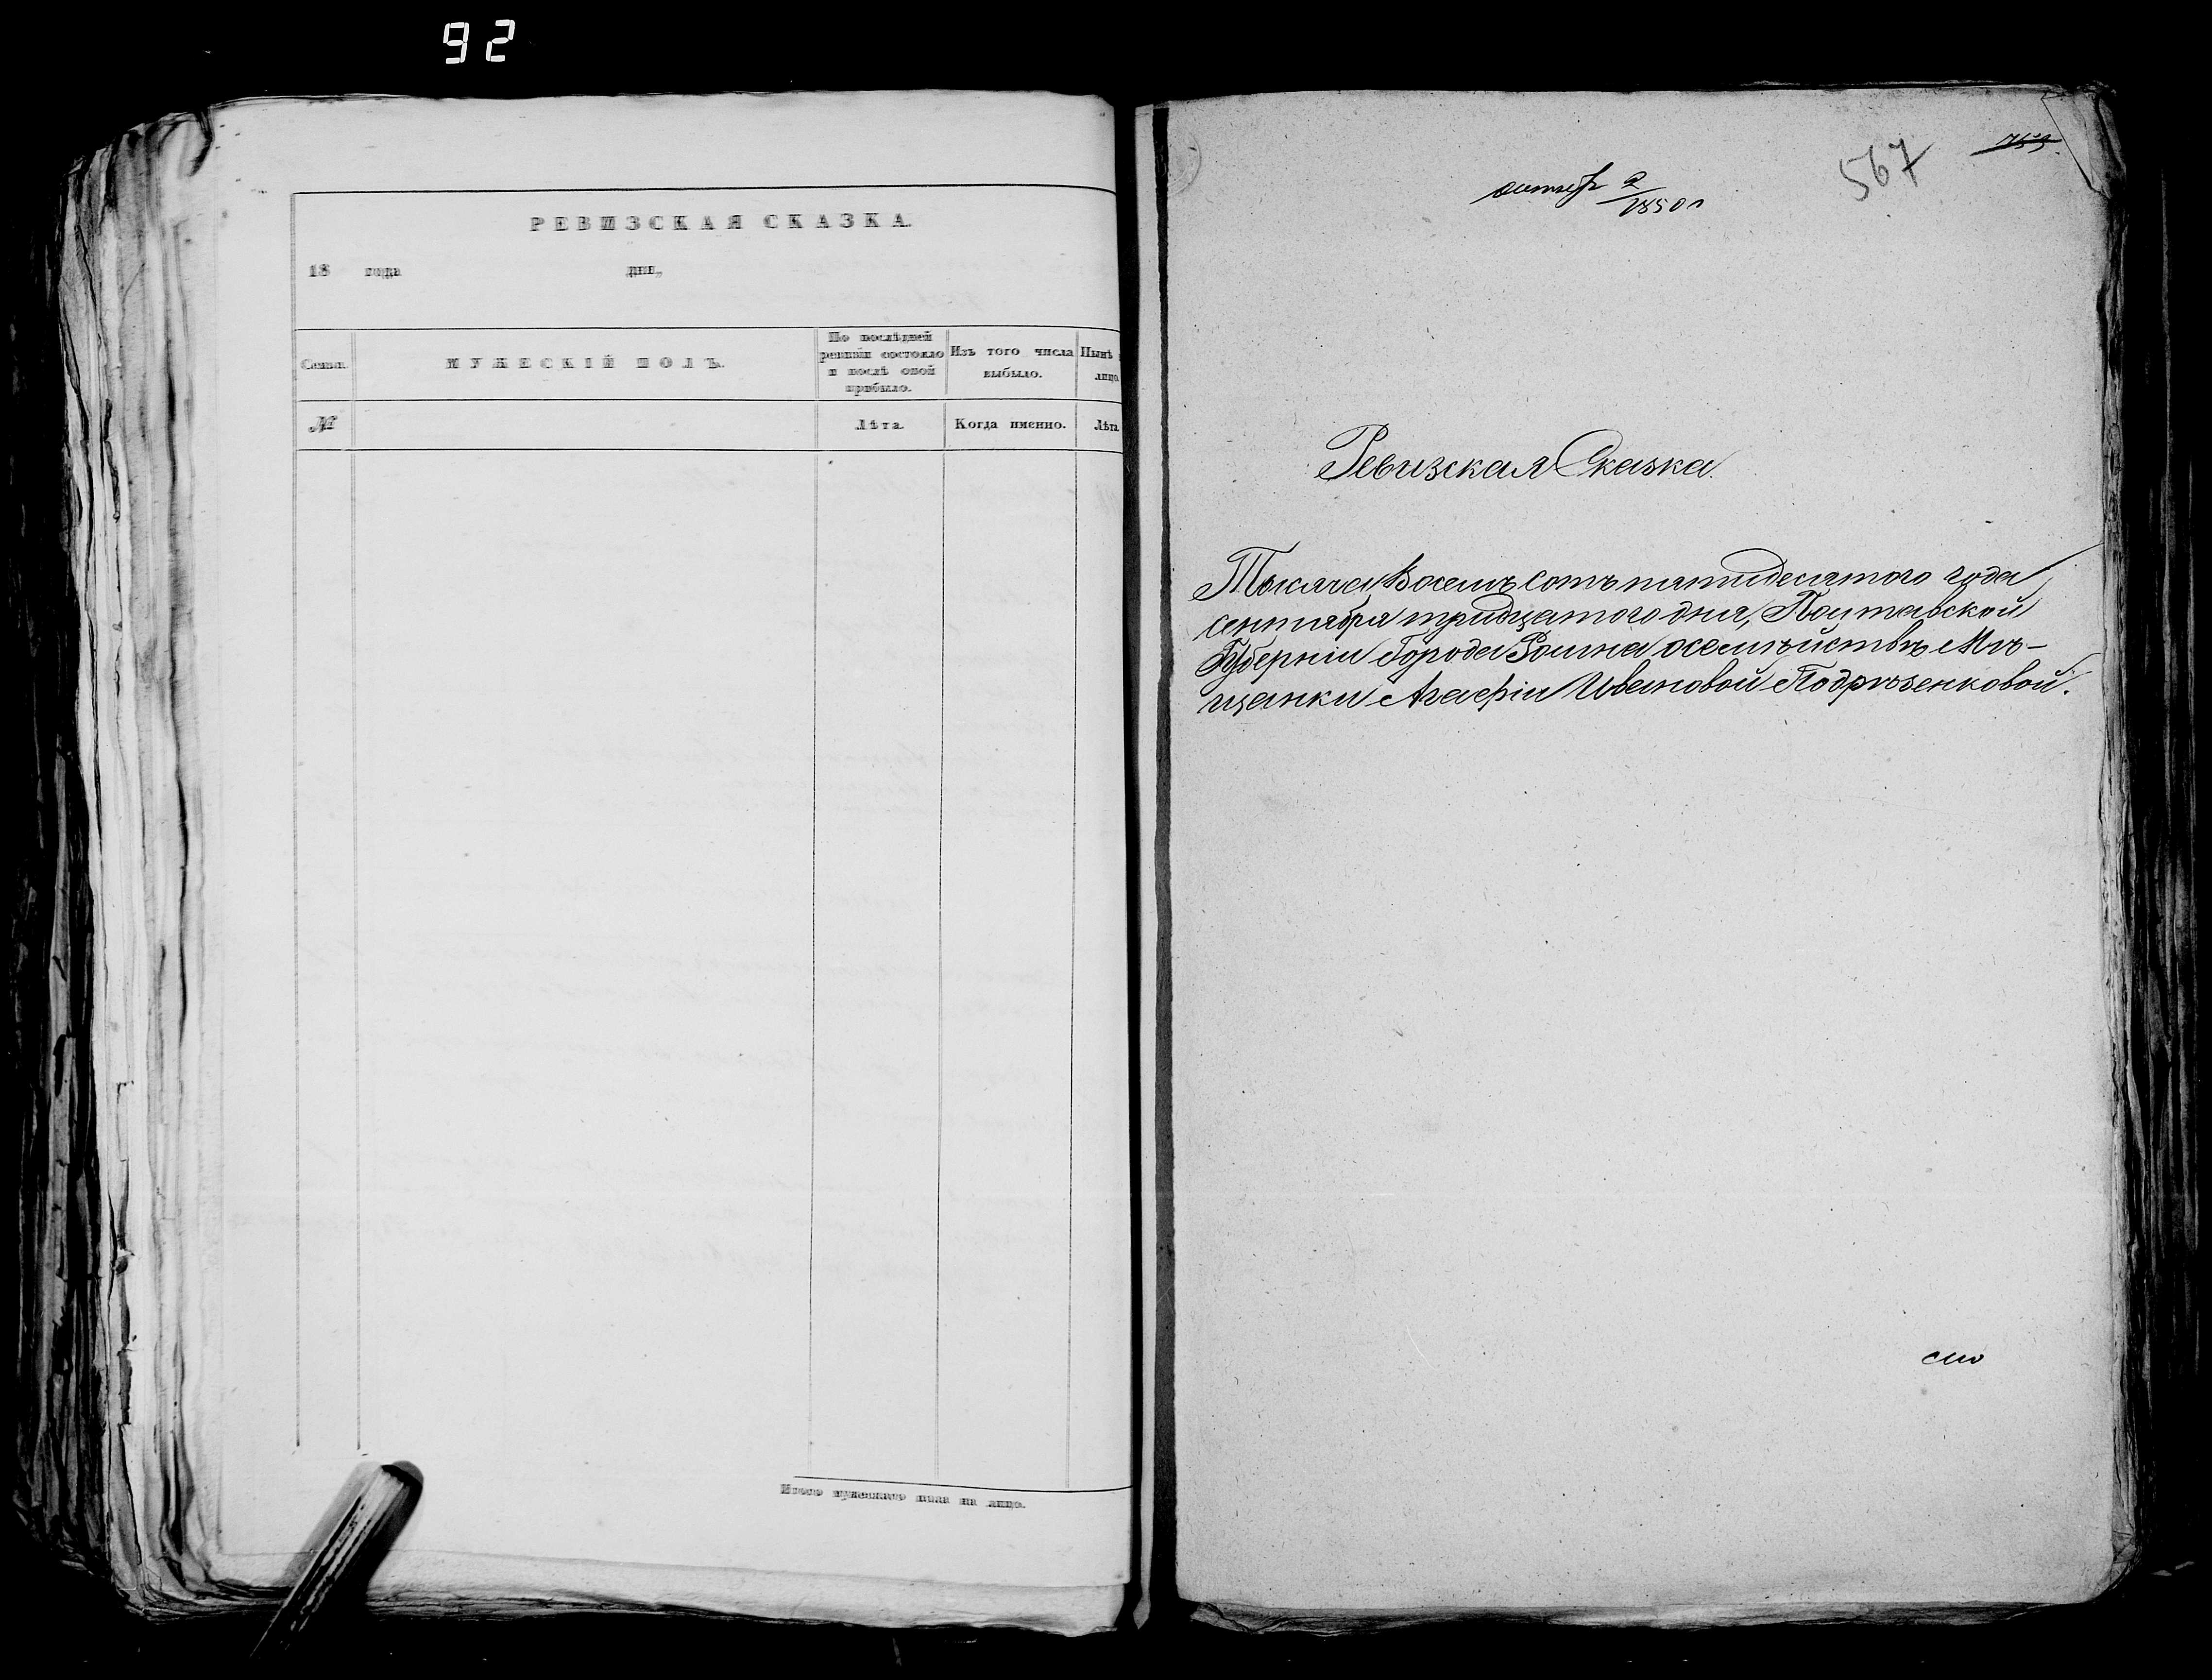 92
РЕВИЗСКАЯ СКАЗКА.
18 года дня,
Семьи.
МУЖЕСКІЙ ПОЛЪ.
По послѣдней ревизіи состояло и послѣ оной прибыло.
Изъ того числа выбыло.
Нынѣ лицо.
№
Лѣта.
Когда именно.
Лѣта
Итого мужескаго пола на лицо.
567
753.
2
1850 г
Ревизская Сказка.
Тысяча Восемъ сотъ пятидесятого года
сентября тридцатого дня, Полтавской
Губерніи Города Ромна о семѣйствѣ Мѣ-
щанки Агафіи Ивановой Подрѣзенковой.